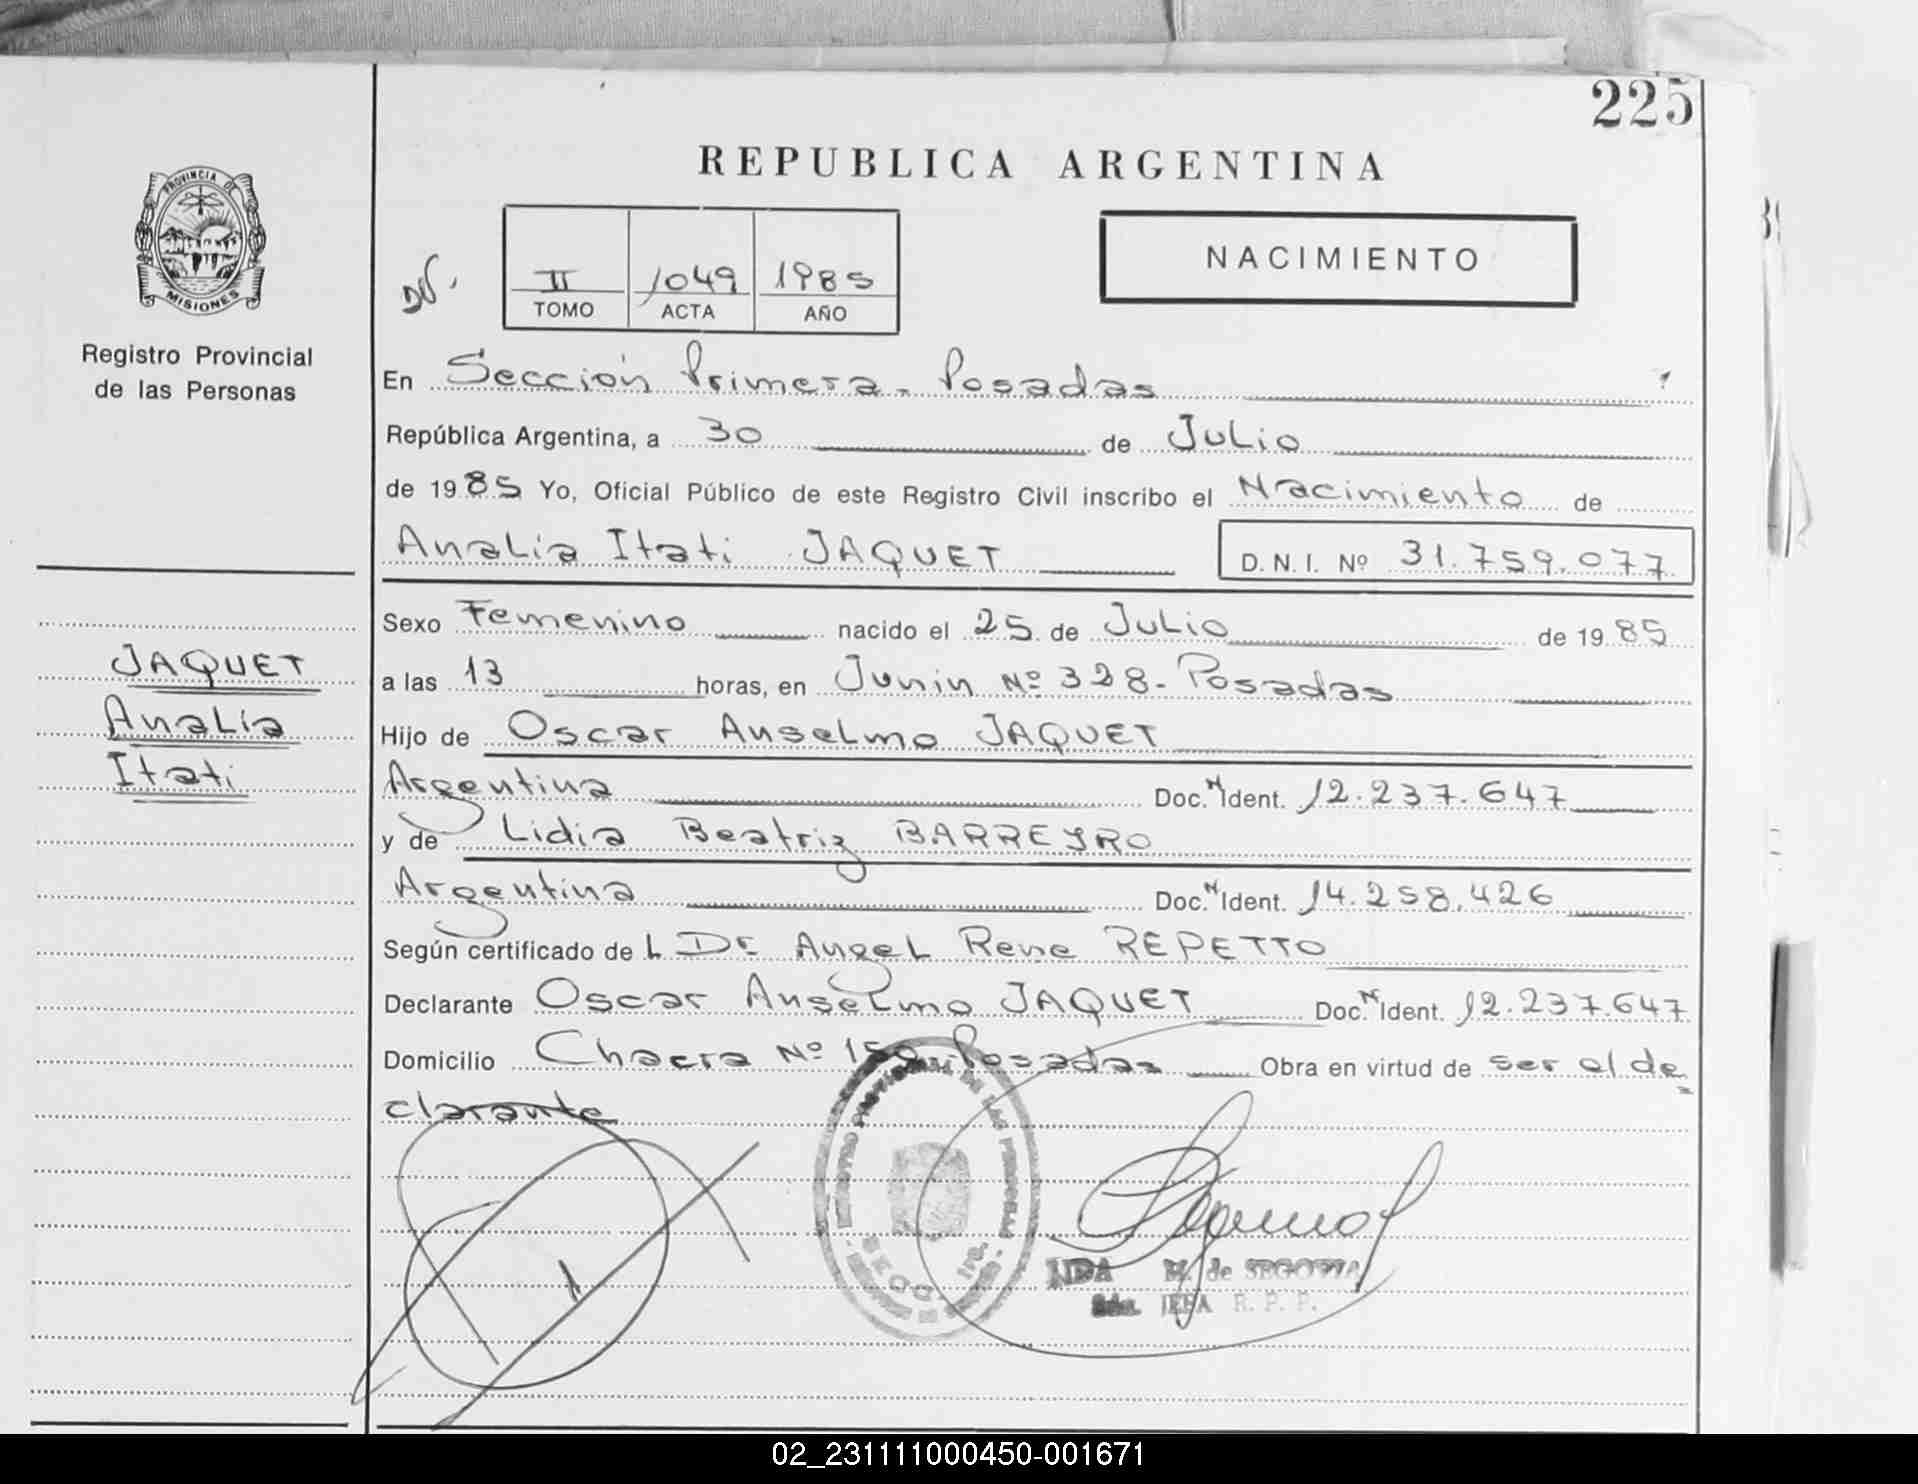 225
REPUBLICA ARGENTINA
PROVINCIA DE
MISIONES
Registro Provincial
de las Personas
II 1049 1985
TOMO ACTA AÑO
NACIMIENTO
En Sección Primera - Posadas
República Argentina, a 30 de Julio
de 1985 Yo, Oficial Público de este Registro Civil inscribo el Nacimiento de
Analía Itati JAQUET D.N.I. Nº 31.759.077
JAQUET
Analía
Itati
Sexo Femenino nacido el 25 de Julio de 1985
a las 13 horas, en Junin Nº 328 - Posadas
Hijo de Oscar Anselmo JAQUET
Argentina Doc. N Ident. 12.237.647
y de Lidia Beatriz BARREYRO
Argentina Doc. N Ident. 14.258.426
Según certificado de L Dr. Angel Rene REPETTO
Declarante Oscar Anselmo JAQUET Doc. N Ident. 12.237.647
Domicilio Chacra Nº 150 Posadas Obra en virtud de ser el de=
clarante
M. de SEGOVIA
JEFA R. P. P.
02_231111000450-001671